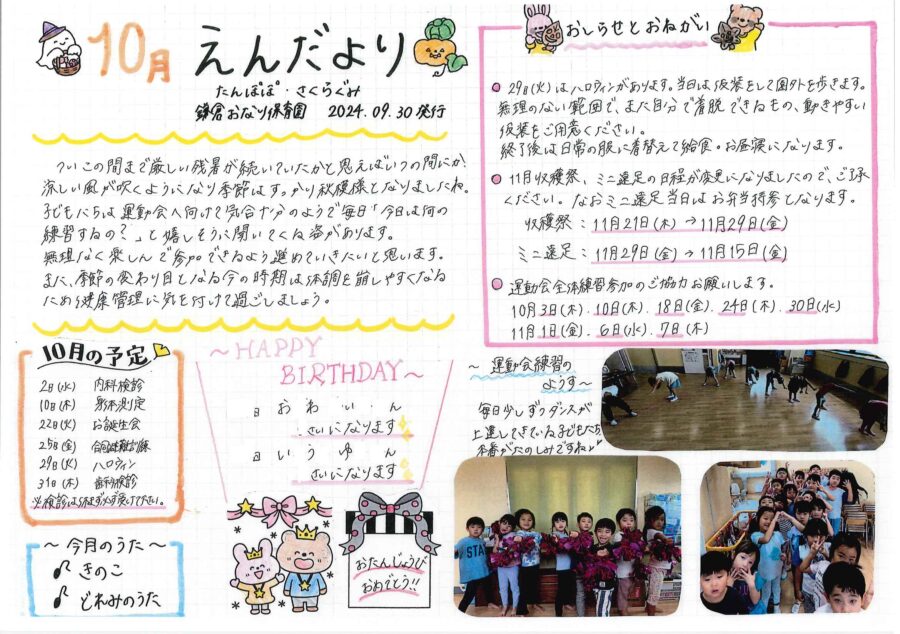 10月 えんだより
たんぽぽ・さくらぐみ
鎌倉おなり保育園 2024.09.30発行
ついこの間まで厳しい残暑が続いていたかと思えばいつの間にか
涼しい風が吹くようになり季節はすっかり秋模様となりましたね。
子どもたちは運動会へ向けて気合十分のようで毎日「今日は何の
練習するの?」と嬉しそうに聞いてくる姿があります。
無理なく楽しんで参加できるよう進めていきたいと思います。
また、季節の変わり目となる今の時期は体調を崩しやすくなる
ため健康管理に気を付けて過ごしましょう。
おしらせとおねがい
29日(火)はハロウィンがあります。当日は仮装をして園外を歩きます。
無理のない範囲で、また自分で着脱できるもの、動きやすい
仮装をご用意ください。
終了後は日常の服に着替えて給食・お昼寝になります。
11月収穫祭、ミニ遠足の日程が変更になりましたので、ご了承
ください。なおミニ遠足当日はお弁当持参となります。
収穫祭:11月21日(木)→11月29日(金)
ミニ遠足:11月29日(金)→11月15日(金)
運動会全体練習参加のご協力お願いします。
10月3日(木).10日(木).18日(金).24日(木).30日(水)
11月1日(金).6日(水).7日(木)
10月の予定
2日(水) 内科検診
10日(木) 身体測定
22日(火) お誕生会
25日(金) 合同避難訓練
29日(火) ハロウィン
31日(木) 歯科検診
※検診は休まず必ず受けて下さい。
~HAPPY
BIRTHDAY~
日 おわ・い・ん
さいになります
日 いうゆん
さいになります
おたんじょうび
おめでとう!!
~今月のうた~
きのこ
どれみのうた
~運動会練習の
ようす~
毎日少しずつダンスが
上達してきている子どもたち
本番がたのしみですね♥
STA